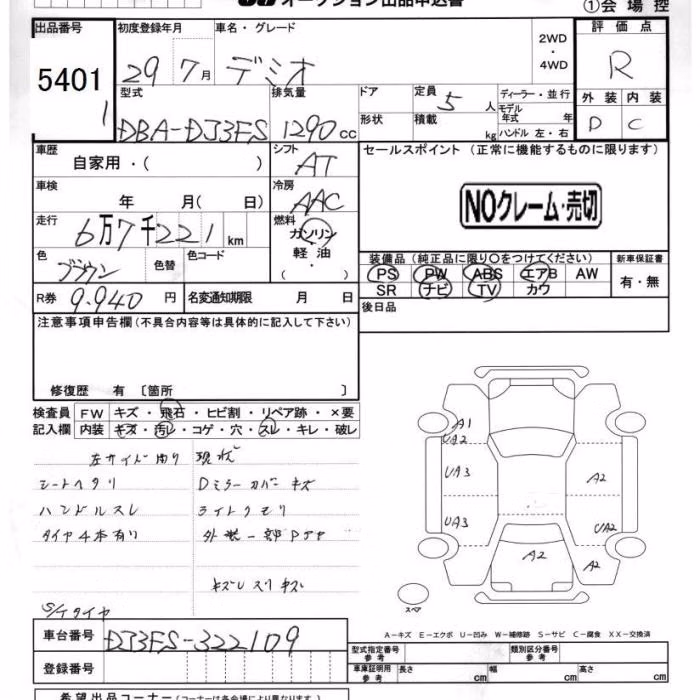 オークション出品申込書
①会場控
出品番号
5401
1
初度登録年月
29年7月
車名・グレード
デミオ
2WD
・
4WD
評価点
R
外装 内装
D C
型式
DBA-DJ3FS
排気量
1290cc
ドア
形状
定員
5人
積載
kg
ディーラー・並行
モデル年式 年
ハンドル 左・右
車歴
自家用・( )
シフト
AT
セールスポイント (正常に機能するものに限ります)
NOクレーム・売切
車検
年 月( 日)
冷房
AAC
走行
6万7千221km
燃料
ガソリン
軽油
・( )
色
ブラウン
色替
色コード
R券 9.940円
名変通知期限 月 日
装備品 (純正品に限り○をつけてください)
PS PW ABS エアB AW
SR ナビ TV カワ
新車保証書
有・無
後日品
注意事項申告欄(不具合内容等は具体的に記入して下さい)
修復歴 有 〔箇所 〕
検査員記入欄
FW キズ・飛石・ヒビ割・リペア跡・×要
内装 キズ・汚レ・コゲ・穴・スレ・キレ・破レ
左サイド周り 現状
シートヘタリ Dミラーカバーキズ
ハンドルスレ ライトクモリ
タイヤ4本有り 外装一部Pアヤ
キズレスリキズ
S/Tタイヤ
A1
UA2
UA3
A2
UA3
UA2
A2
A2
スペア
A-キズ E-エクボ U-凹み W-補修跡 S-サビ C-腐食 XX-交換済
車台番号 DJ3FS-322109
登録番号
型式指定番号 参考
類別区分番号 参考
車庫証明用 参考
長さ cm 幅 cm 高さ cm
希望出品コーナー(コーナーは各会場により異なります)